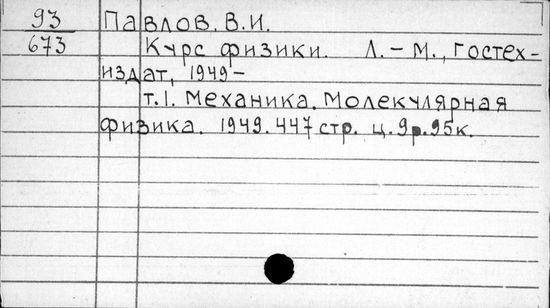 93 Павлов. В.И.
673 Курс физики. Л.-М., Гостех-
издат, 1949-
т.1. Механика. Молекулярная
физика. 1949. 447 стр. ц. 9р. 95к.